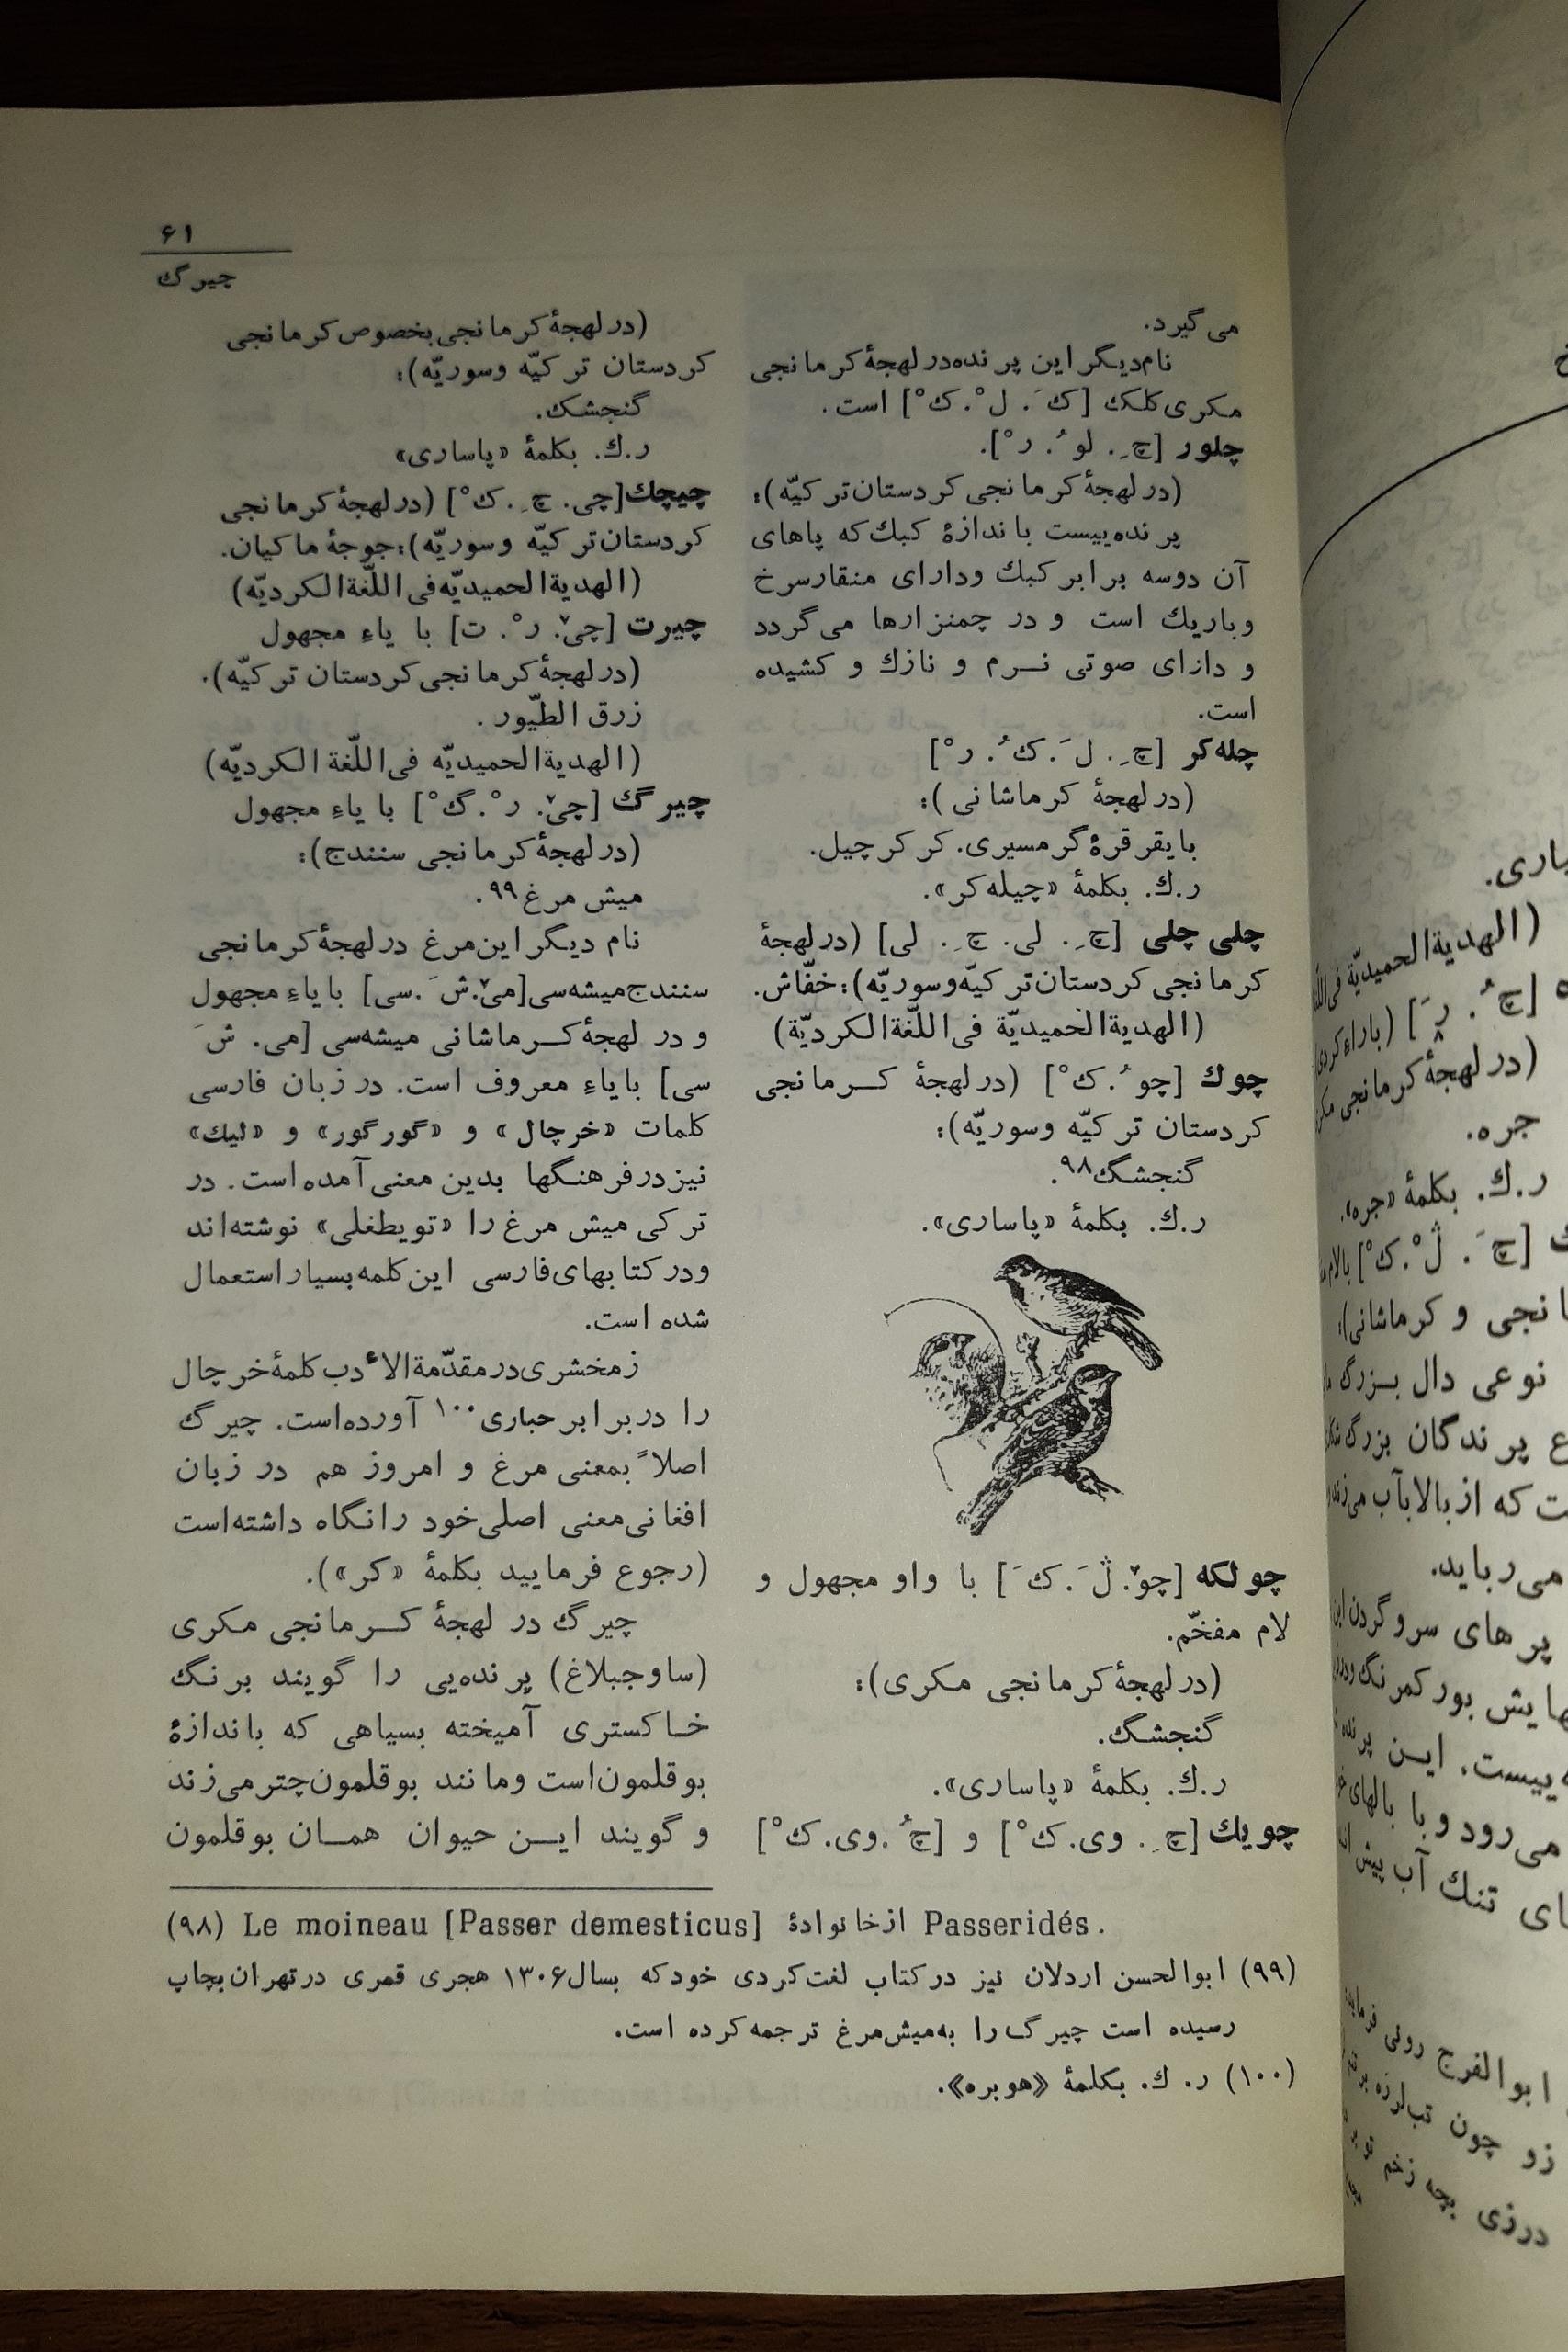 ۶۱
چیرگ
می‌گیرد.
نام‌دیگر این پرنده‌در لهجهٔ کرمانجی
مکری کلکك [كَ . لْ . كْ] است.
چلور [چِ . لوُ . رْ].
(در لهجهٔ کرمانجی کردستان‌ترکیّه):
پرنده‌ییست باندازهٔ كبك‌که پاهای
آن دوسه برابر كبك ودارای منقارسرخ
وباريك است و در چمنزارها می‌گردد
و دارای صوتی نرم و نازك و کشیده
است.
چله‌کر [چِ . لَ . كُ . رْ]
(در لهجهٔ کرماشانی):
بایقرقرهٔ گرمسیری. کرکرچیل.
ر.ك. بکلمهٔ «چیله‌کر».
چلی چلی [چِ . لی. چِ . لی] (در لهجهٔ
کرمانجی کردستان‌ترکیّه‌وسوریّه): خفّاش.
(الهدیةالحمیدیّة فی‌اللّغةالکردیّة)
چوك [چوُ . كْ] (در لهجهٔ کرمانجی
کردستان ترکیّه وسوریّه):
گنجشگ۹۸.
ر.ك. بکلمهٔ «پاساری».
چولکه [چوٚ. ڵَ . كَ] با واو مجهول و
لام مفخّم.
(در لهجهٔ کرمانجی مکری):
گنجشگ.
ر.ك. بکلمهٔ «پاساری».
چويك [چِ . وی. كْ] و [چُ . وی. كْ]
(در لهجهٔ کرمانجی بخصوص کرمانجی
کردستان ترکیّه وسوریّه):
گنجشک.
ر.ك. بکلمهٔ «پاساری»
چیچك [چی. چِ . كْ] (در لهجهٔ کرمانجی
کردستان‌ترکیّه وسوریّه): جوجهٔ ماکیان.
(الهدیةالحمیدیّه فی‌اللّغةالکردیّه)
چیرت [چیٚ. رْ . ت] با یاءِ مجهول
(در لهجهٔ کرمانجی کردستان ترکیّه).
زرق الطّیور.
(الهدیةالحمیدیّه فی‌اللّغة الکردیّه)
چیرگ [چیٚ. رْ . گْ] با یاءِ مجهول
(در لهجهٔ کرمانجی سنندج):
میش مرغ۹۹.
نام دیگر این‌مرغ در لهجهٔ کرمانجی
سنندج میشه‌سی [میٚ.شَ . سی] با یاءِ مجهول
و در لهجهٔ کرماشانی میشه‌سی [می. شَ
سی] با یاءِ معروف است. در زبان فارسی
کلمات «خرچال» و «گورگور» و «لیك»
نیز در فرهنگها بدین معنی آمده است. در
ترکی میش مرغ را «تویطغلی» نوشته‌اند
ودر کتابهای فارسی این کلمه بسیار استعمال
شده است.
زمخشری در مقدّمةالأدب کلمهٔ خرچال
را در برابر حباری۱۰۰ آورده است. چیرگ
اصلاً بمعنی مرغ و امروز هم در زبان
افغانی معنی اصلی خود را نگاه داشته است
(رجوع فرمایید بکلمهٔ «کر»).
چیرگ در لهجهٔ کرمانجی مکری
(ساوجبلاغ) پرنده‌یی را گویند برنگ
خاکستری آمیخته بسیاهی که باندازهٔ
بوقلمون است ومانند بوقلمون چتر می‌زند
و گویند این حیوان همان بوقلمون
(۹۸) Le moineau [Passer demesticus] ازخانوادهٔ Passeridés.
(۹۹) ابوالحسن اردلان نیز در کتاب لغت کردی خود که بسال ۱۳۰۶ هجری قمری در تهران بچاپ
رسیده است چیرگ را به‌میش‌مرغ ترجمه کرده است.
(۱۰۰) ر. ك. بکلمهٔ «هوبره».
(الهدیةالحمیدیّة
(در لهجهٔ کرمانجی
جره.
ر.ك. بکلمهٔ «جره».
و کرماشانی):
نوعی دال بزرگ
پرندگان بزرگ
که از بالا بآب می‌زند
می‌رباید.
پرهای سر و گردن
بور کمرنگ
ییست. این پرنده
می‌رود و با بالهای
تنك آب پیش
ابوالفرج رونی
زو چون تب‌لرزه
درزی بچه زخم